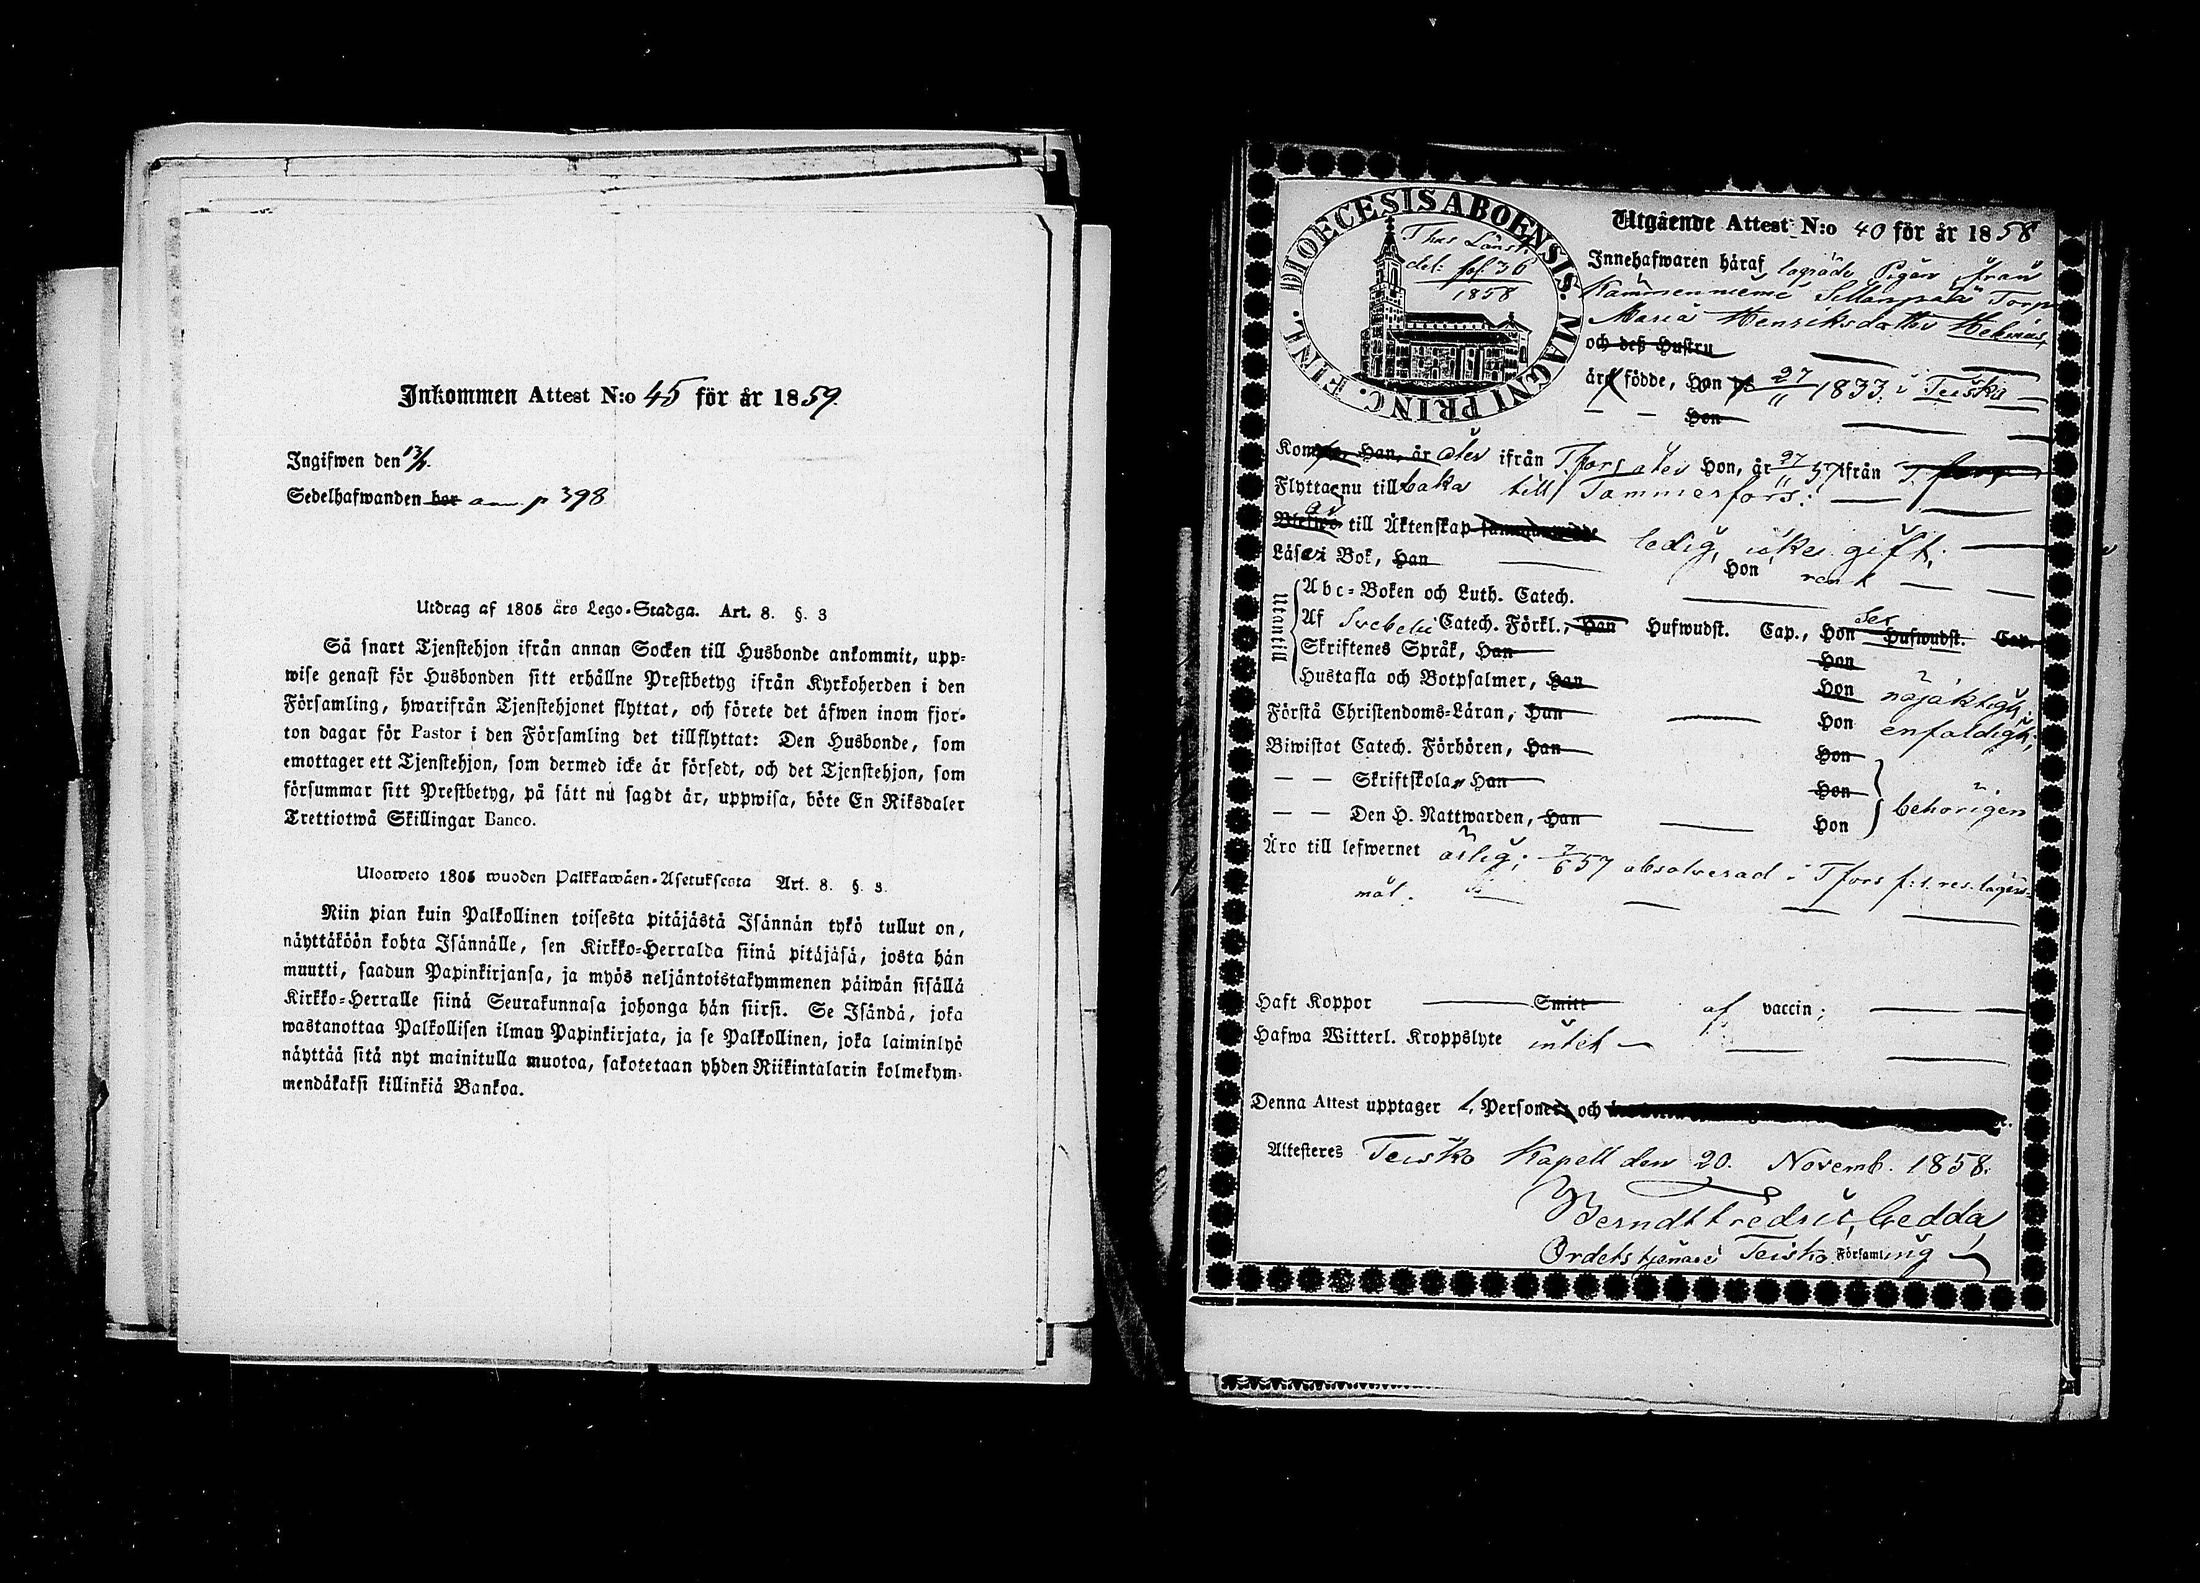 Inkommen Attest N:o 45 för år 1859.
Ingifwen den 13/1.
Sedelhafwanden bor ann. p 398
Utdrag af 1805 års Lego-Stadga. Art. 8. §. 3
Så snart Tjenstehjon ifrån annan Socken till Husbonde ankommit, upp-
wise genast för Husbonden sitt erhållne Prestbetyg ifrån Kyrkoherden i den
Församling, hwarifrån Tjenstehjonet flyttat, och förete det äfwen inom fjor-
ton dagar för Pastor i den Församling det tillflyttat: Den Husbonde, som
emottager ett Tjenstehjon, som dermed icke är försedt, och det Tjenstehjon, som
försummar sitt Prestbetyg, på sätt nu sagdt är, uppwisa, böte En Riksdaler
Trettiotwå Skillingar Banco.
Ulosweto 1805 wuoden Palkkawäen-Asetuksesta Art. 8. §. 3.
Niin pian kuin Palkollinen toisesta pitäjästä Isännän tykö tullut on,
näyttäköön kohta Isännälle, sen Kirkko-Herralda siinä pitäjäsä, josta hän
muutti, saadun Papinkirjansa, ja myös neljäntoistakymmenen päiwän sisällä
Kirkko-Herralle siinä Seurakunnasa johonga hän siirsi. Se Isändä, joka
wastanottaa Palkollisen ilman Papinkirjata, ja se Palkollinen, joka laiminlyö
näyttää sitä nyt mainitulla muotoa, sakotetaan yhden Riikintalarin kolmekym-
mendäkaksi killinkiä Bankoa.
DIOECESIS ABOENSIS. MAGNI PRINC. FINL.
del: fol: 36
1858
Utgående Attest N:o 40 för år 1858
Innehafwaren häraf lägrade Pigan från
Kämmenniemi Sillanpää Torp
Maria Henriksdotter Helenius,
och deß Hustru
äro födde, Hon 27/11 1833. i Teisko
— — Hon
Komne, Han, år åter ifrån T.fors åter Hon, år 27/11 57 ifrån T. fors
Flytta nu tillbaka till Tammerfors:
till Äktenskap ledig, icke gift;
Läsa i Bok, Han Hon rent
Utantill
Abc-Boken och Luth. Catech.
Af Svebelii Catech. Förkl., Han Hufwudst. Cap., Hon Hufwudst. Cap.
Skriftenes Språk, Han Hon
Hustafla och Botpsalmer, Han Hon nöjaktigt;
Förstå Christendoms-Läran, Han Hon enfaldigt,
Biwistat Catech. Förhören, Han Hon
— — Skriftskola, Han Hon behörigen
— — Den H. Nattwarden, Han Hon
Äro till lefwernet ärlig; 7/6 57 absolverad i Tfors f: 1. res. lägers-
mål.
Haft Koppor Smitt af vaccin;
Hafwa Witterl. Kroppslyte intet
Denna Attest upptager 1. Personer och
Attesteres Teisko Kapell den 20. Novemb. 1858.
Berndt Fredric Gedda
Ordets tjenare i Teisko Församling